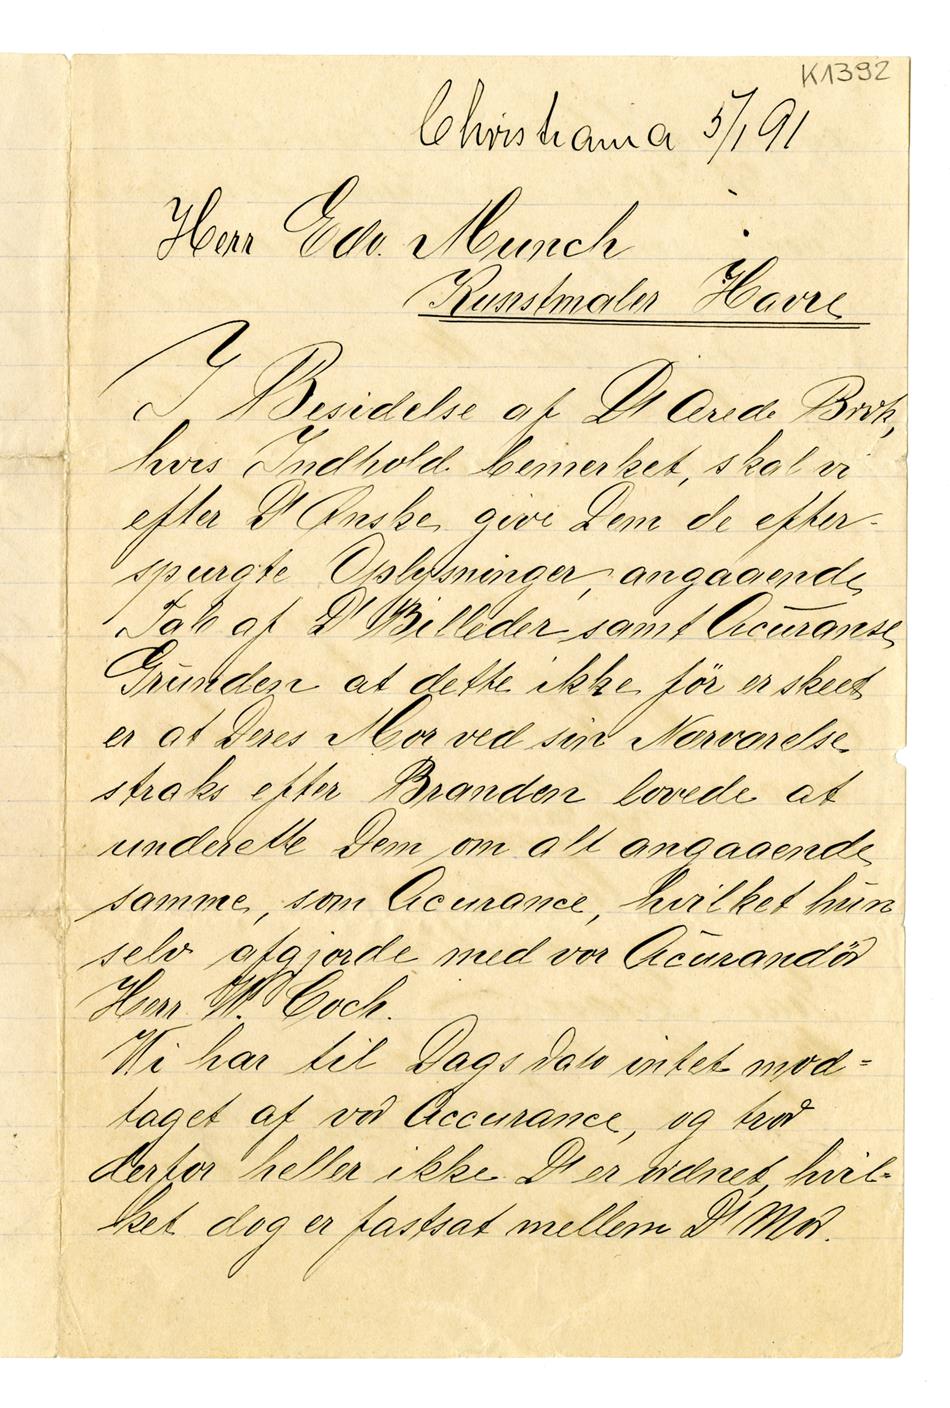 K1392
Christiania 5/1 91
Herr Edv. Munch
Kunstmaler Havre
I Besidelse af Ds ærede Brev,
hvis Indhold bemerket, skal vi
efter Ds Ønske give Dem de efter-
spurgte Oplysninger, angaaende
Tab af Ds Billeder samt Acuranse
Grunden at dette ikke för er skeet
er at Deres Mor ved sin Nærværelse
straks efter Branden lovede at
underette Dem om alt angaaende
samme, som Acurance, hvilket hun
selv afgjorde med vor Acurandör
Herr W. Coch.
Vi har til Dags Dato intet mod=
taget af vor Accurance, og tror
derfor heller ikke Ds er ordnet, hvil-
ket dog er fastsat mellem Ds Mor.